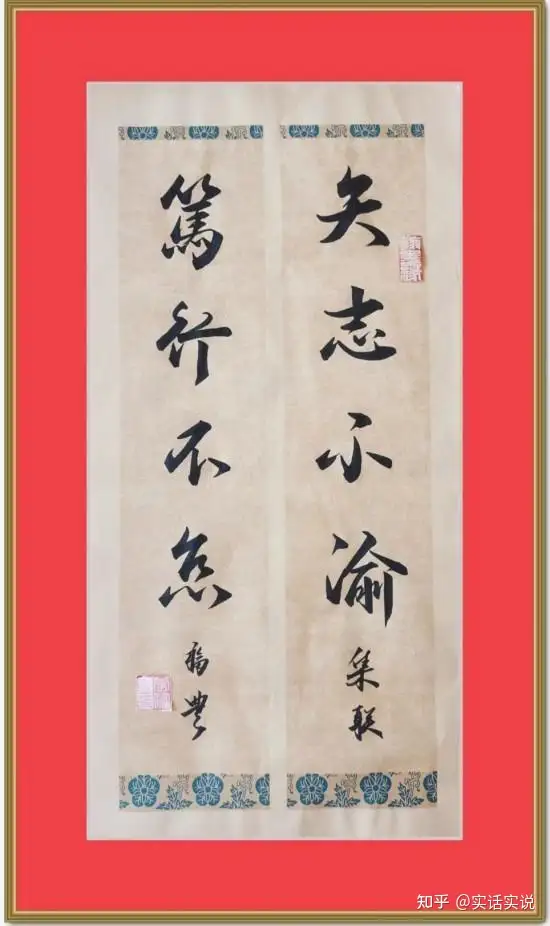 矢志不渝
集联
篤行不怠
福豊
知乎 @实话实说